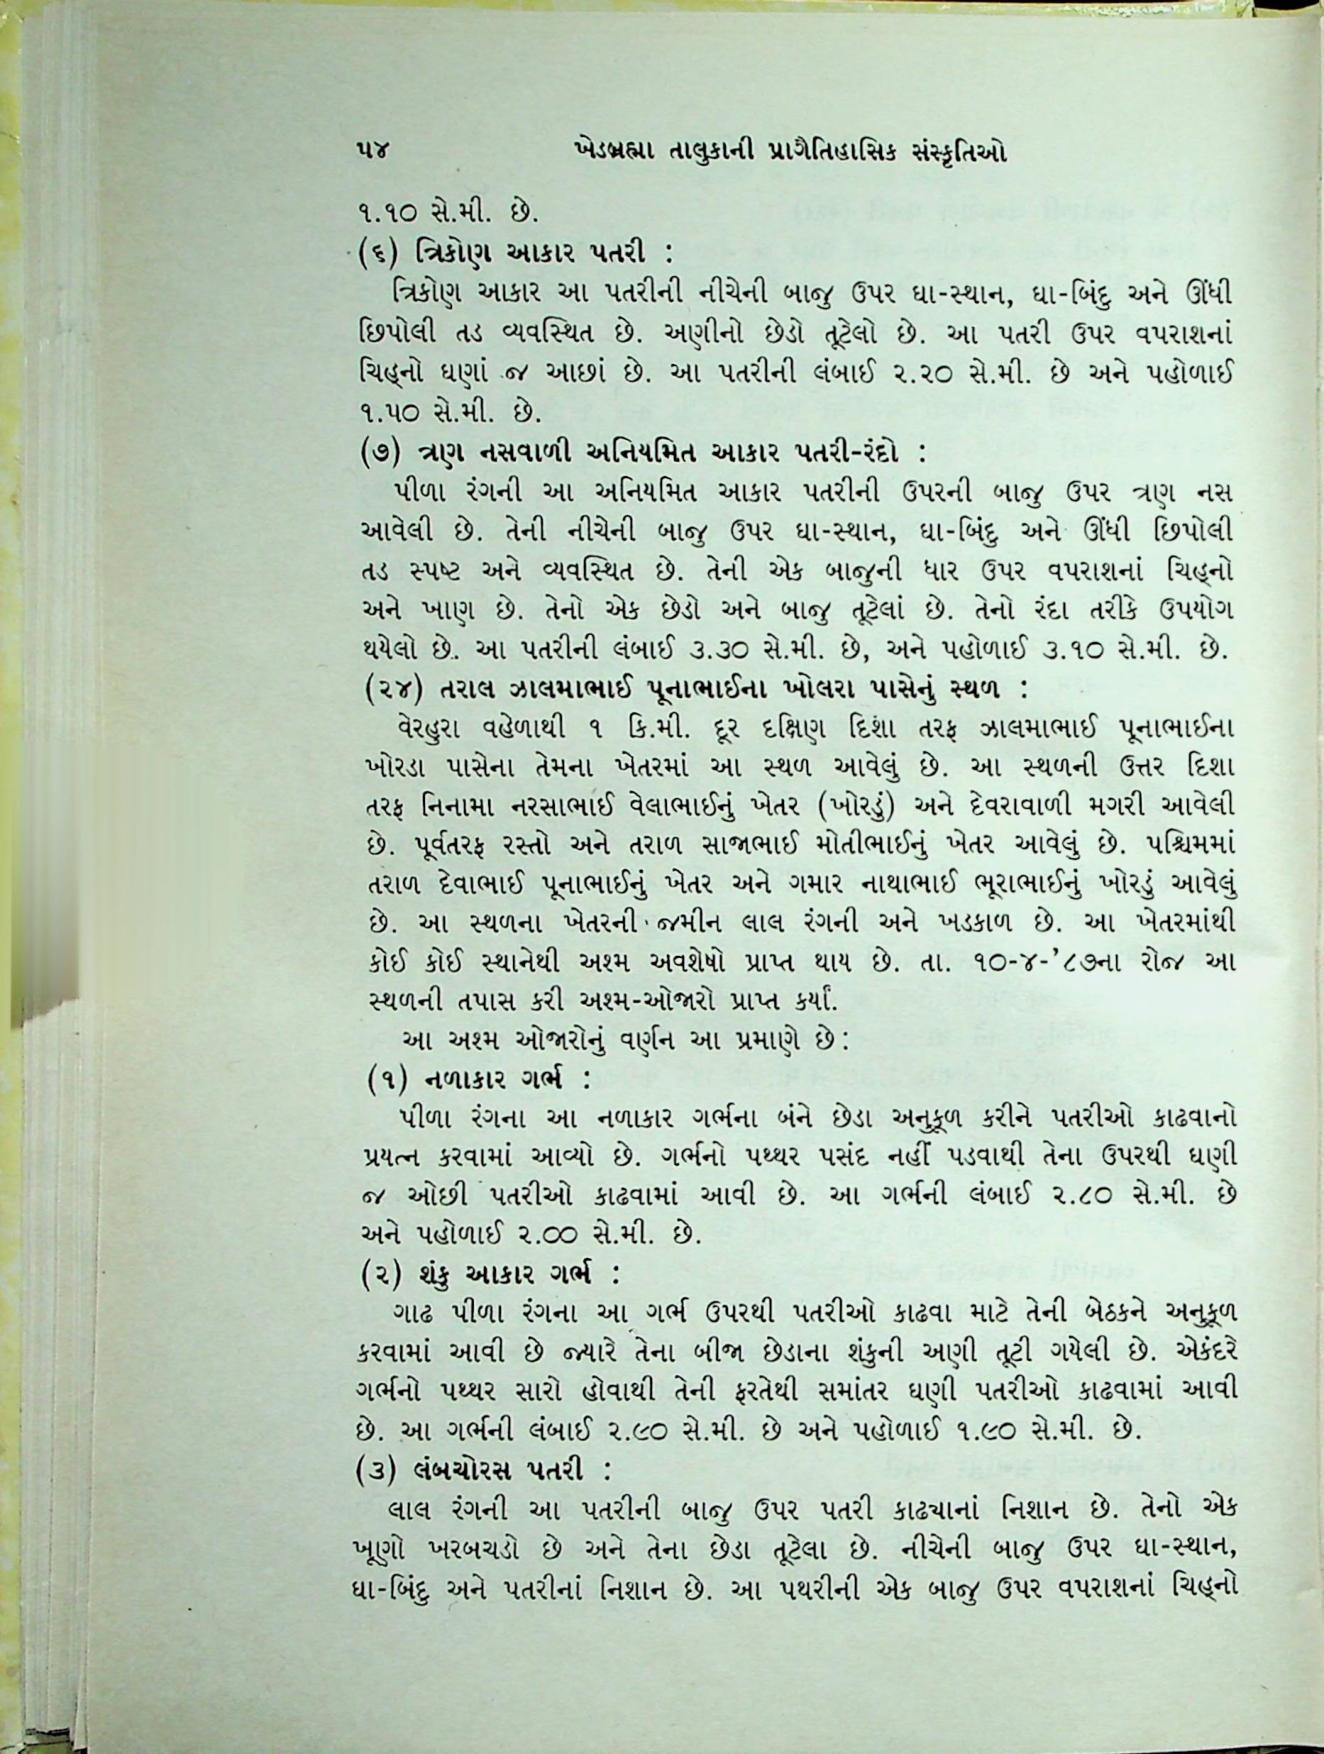 ૫૪ ખેડબ્રહ્મા તાલુકાની પ્રાગૈતિહાસિક સંસ્કૃતિઓ
૧.૧૦ સે.મી. છે.
(૬) ત્રિકોણ આકાર પતરી :
ત્રિકોણ આકાર આ પતરીની નીચેની બાજુ ઉપર ઘા-સ્થાન, ઘા-બિંદુ અને ઊંધી
છિપોલી તડ વ્યવસ્થિત છે. અણીનો છેડો તૂટેલો છે. આ પતરી ઉપર વપરાશનાં
ચિહ્નો ઘણાં જ આછાં છે. આ પતરીની લંબાઈ ૨.૨૦ સે.મી. છે અને પહોળાઈ
૧.૫૦ સે.મી. છે.
(૭) ત્રણ નસવાળી અનિયમિત આકાર પતરી-રંદો :
પીળા રંગની આ અનિયમિત આકાર પતરીની ઉપરની બાજુ ઉપર ત્રણ નસ
આવેલી છે. તેની નીચેની બાજુ ઉપર ઘા-સ્થાન, ઘા-બિંદુ અને ઊંધી છિપોલી
તડ સ્પષ્ટ અને વ્યવસ્થિત છે. તેની એક બાજુની ધાર ઉપર વપરાશનાં ચિહ્નો
અને ખાણ છે. તેનો એક છેડો અને બાજુ તૂટેલાં છે. તેનો રંદા તરીકે ઉપયોગ
થયેલો છે. આ પતરીની લંબાઈ ૩.૩૦ સે.મી. છે, અને પહોળાઈ ૩.૧૦ સે.મી. છે.
(૨૪) તરાલ ઝાલમાભાઈ પૂનાભાઈના ખોલરા પાસેનું સ્થળ :
વેરહુરા વહેળાથી ૧ કિ.મી. દૂર દક્ષિણ દિશા તરફ ઝાલમાભાઈ પૂનાભાઈના
ખોરડા પાસેના તેમના ખેતરમાં આ સ્થળ આવેલું છે. આ સ્થળની ઉત્તર દિશા
તરફ નિનામા નરસાભાઈ વેલાભાઈનું ખેતર (ખોરડું) અને દેવરાવાળી મગરી આવેલી
છે. પૂર્વતરફ રસ્તો અને તરાળ સાજાભાઈ મોતીભાઈનું ખેતર આવેલું છે. પશ્ચિમમાં
તરાળ દેવાભાઈ પૂનાભાઈનું ખેતર અને ગમાર નાથાભાઈ ભૂરાભાઈનું ખોરડું આવેલું
છે. આ સ્થળના ખેતરની જમીન લાલ રંગની અને ખડકાળ છે. આ ખેતરમાંથી
કોઈ કોઈ સ્થાનેથી અશ્મ અવશેષો પ્રાપ્ત થાય છે. તા. ૧૦-૪-'૮૭ના રોજ આ
સ્થળની તપાસ કરી અશ્મ-ઓજારો પ્રાપ્ત કર્યાં.
આ અશ્મ ઓજારોનું વર્ણન આ પ્રમાણે છે:
(૧) નળાકાર ગર્ભ :
પીળા રંગના આ નળાકાર ગર્ભના બંને છેડા અનુકૂળ કરીને પતરીઓ કાઢવાનો
પ્રયત્ન કરવામાં આવ્યો છે. ગર્ભનો પથ્થર પસંદ નહીં પડવાથી તેના ઉપરથી ઘણી
જ ઓછી પતરીઓ કાઢવામાં આવી છે. આ ગર્ભની લંબાઈ ૨.૮૦ સે.મી. છે
અને પહોળાઈ ૨.૦૦ સે.મી. છે.
(૨) શંકુ આકાર ગર્ભ :
ગાઢ પીળા રંગના આ ગર્ભ ઉપરથી પતરીઓ કાઢવા માટે તેની બેઠકને અનુકૂળ
કરવામાં આવી છે જ્યારે તેના બીજા છેડાના શંકુની અણી તૂટી ગયેલી છે. એકંદરે
ગર્ભનો પથ્થર સારો હોવાથી તેની ફરતેથી સમાંતર ઘણી પતરીઓ કાઢવામાં આવી
છે. આ ગર્ભની લંબાઈ ૨.૯૦ સે.મી. છે અને પહોળાઈ ૧.૯૦ સે.મી. છે.
(૩) લંબચોરસ પતરી :
લાલ રંગની આ પતરીની બાજુ ઉપર પતરી કાઢ્યાનાં નિશાન છે. તેનો એક
ખૂણો ખરબચડો છે અને તેના છેડા તૂટેલા છે. નીચેની બાજુ ઉપર ઘા-સ્થાન,
ઘા-બિંદુ અને પતરીનાં નિશાન છે. આ પથરીની એક બાજુ ઉપર વપરાશનાં ચિહ્નો